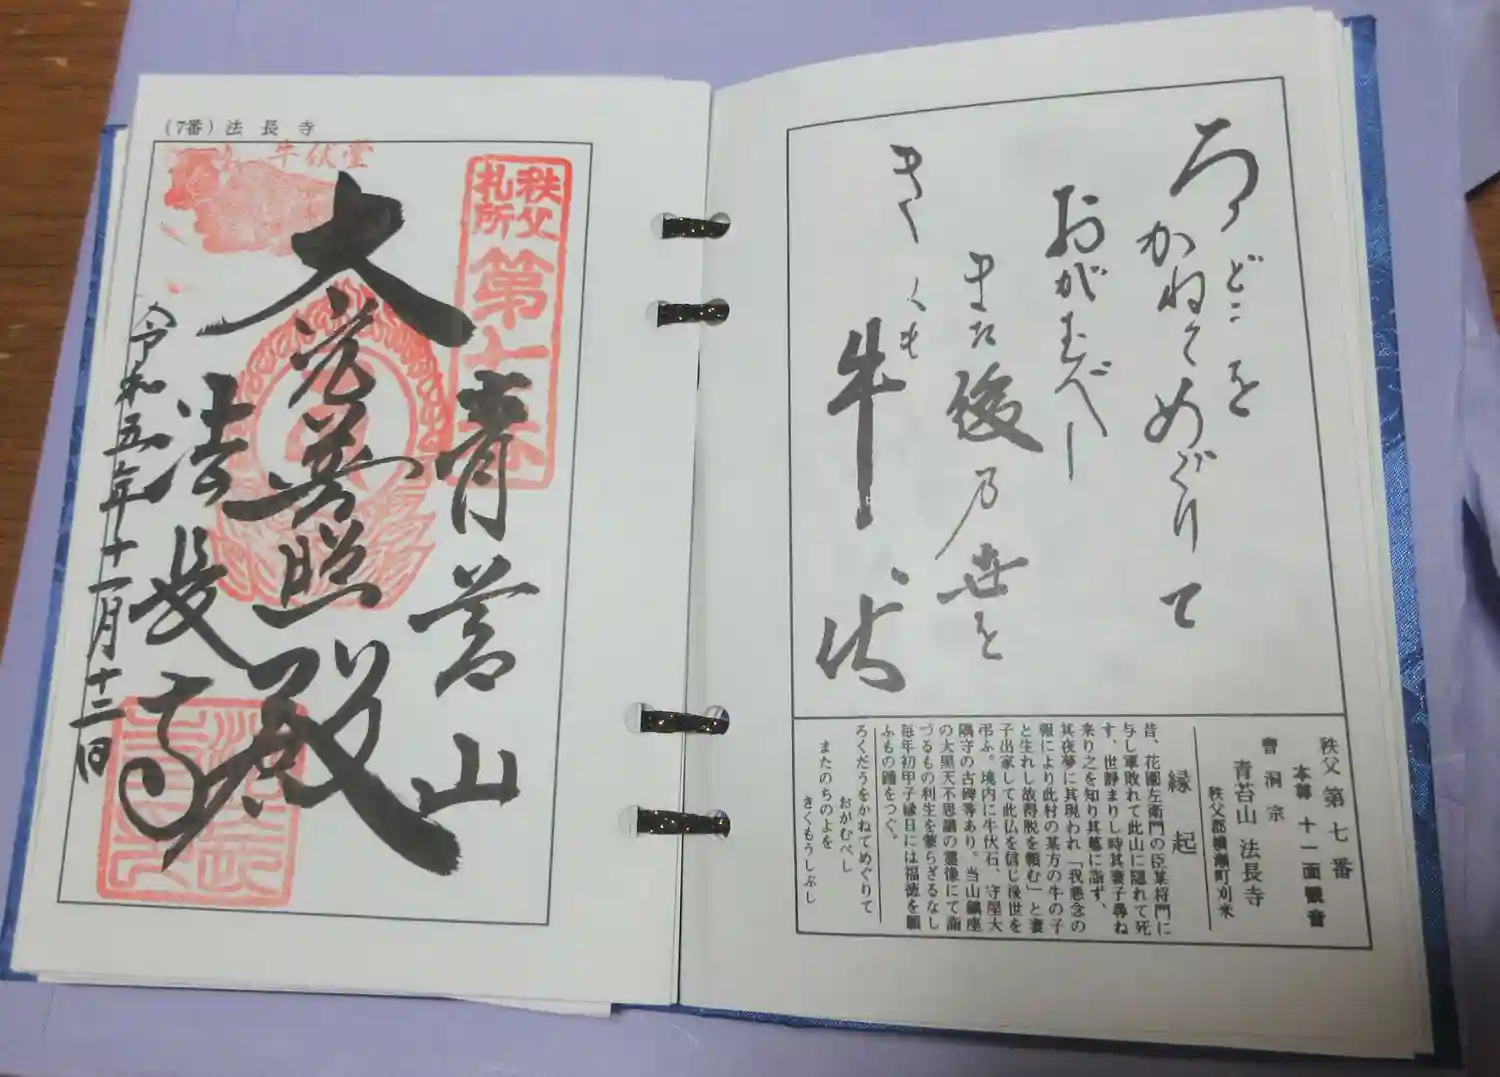 ろくどうを
かねてめぐりて
おがむべし
また後乃世を
きくも
牛伏
秩父第七番
本尊 十一面観音
曹洞宗
青苔山 法長寺
秩父郡横瀬町刈米
縁起
昔、花園左衛門の臣某将門に
与し軍敗れて此山に隠れて死
す、世静まりし時其妻子尋ね
来り之を知り其墓に詣ず、
其夜夢に其現われ「我懸念の
報により此村の某方の牛の子
と生れし故得脱を頼む」と妻
子出家して此仏を信じ後世を
弔ふ。境内に牛伏石、守屋大
隅守の古碑等あり。当山鎮座
の大黒天不思議の霊像にて詣
づるもの利生を蒙らざるなし
毎年初甲子縁日には福徳を願
ふもの踵をつぐ。
ろくだうをかねてめぐりて
おがむべし
またのちのよを
きくもうしぶし
(7番)法長寺
牛伏堂
秩父
札所
第七番
青苔山
大光普照殿
法長寺
令和五年十一月十二日